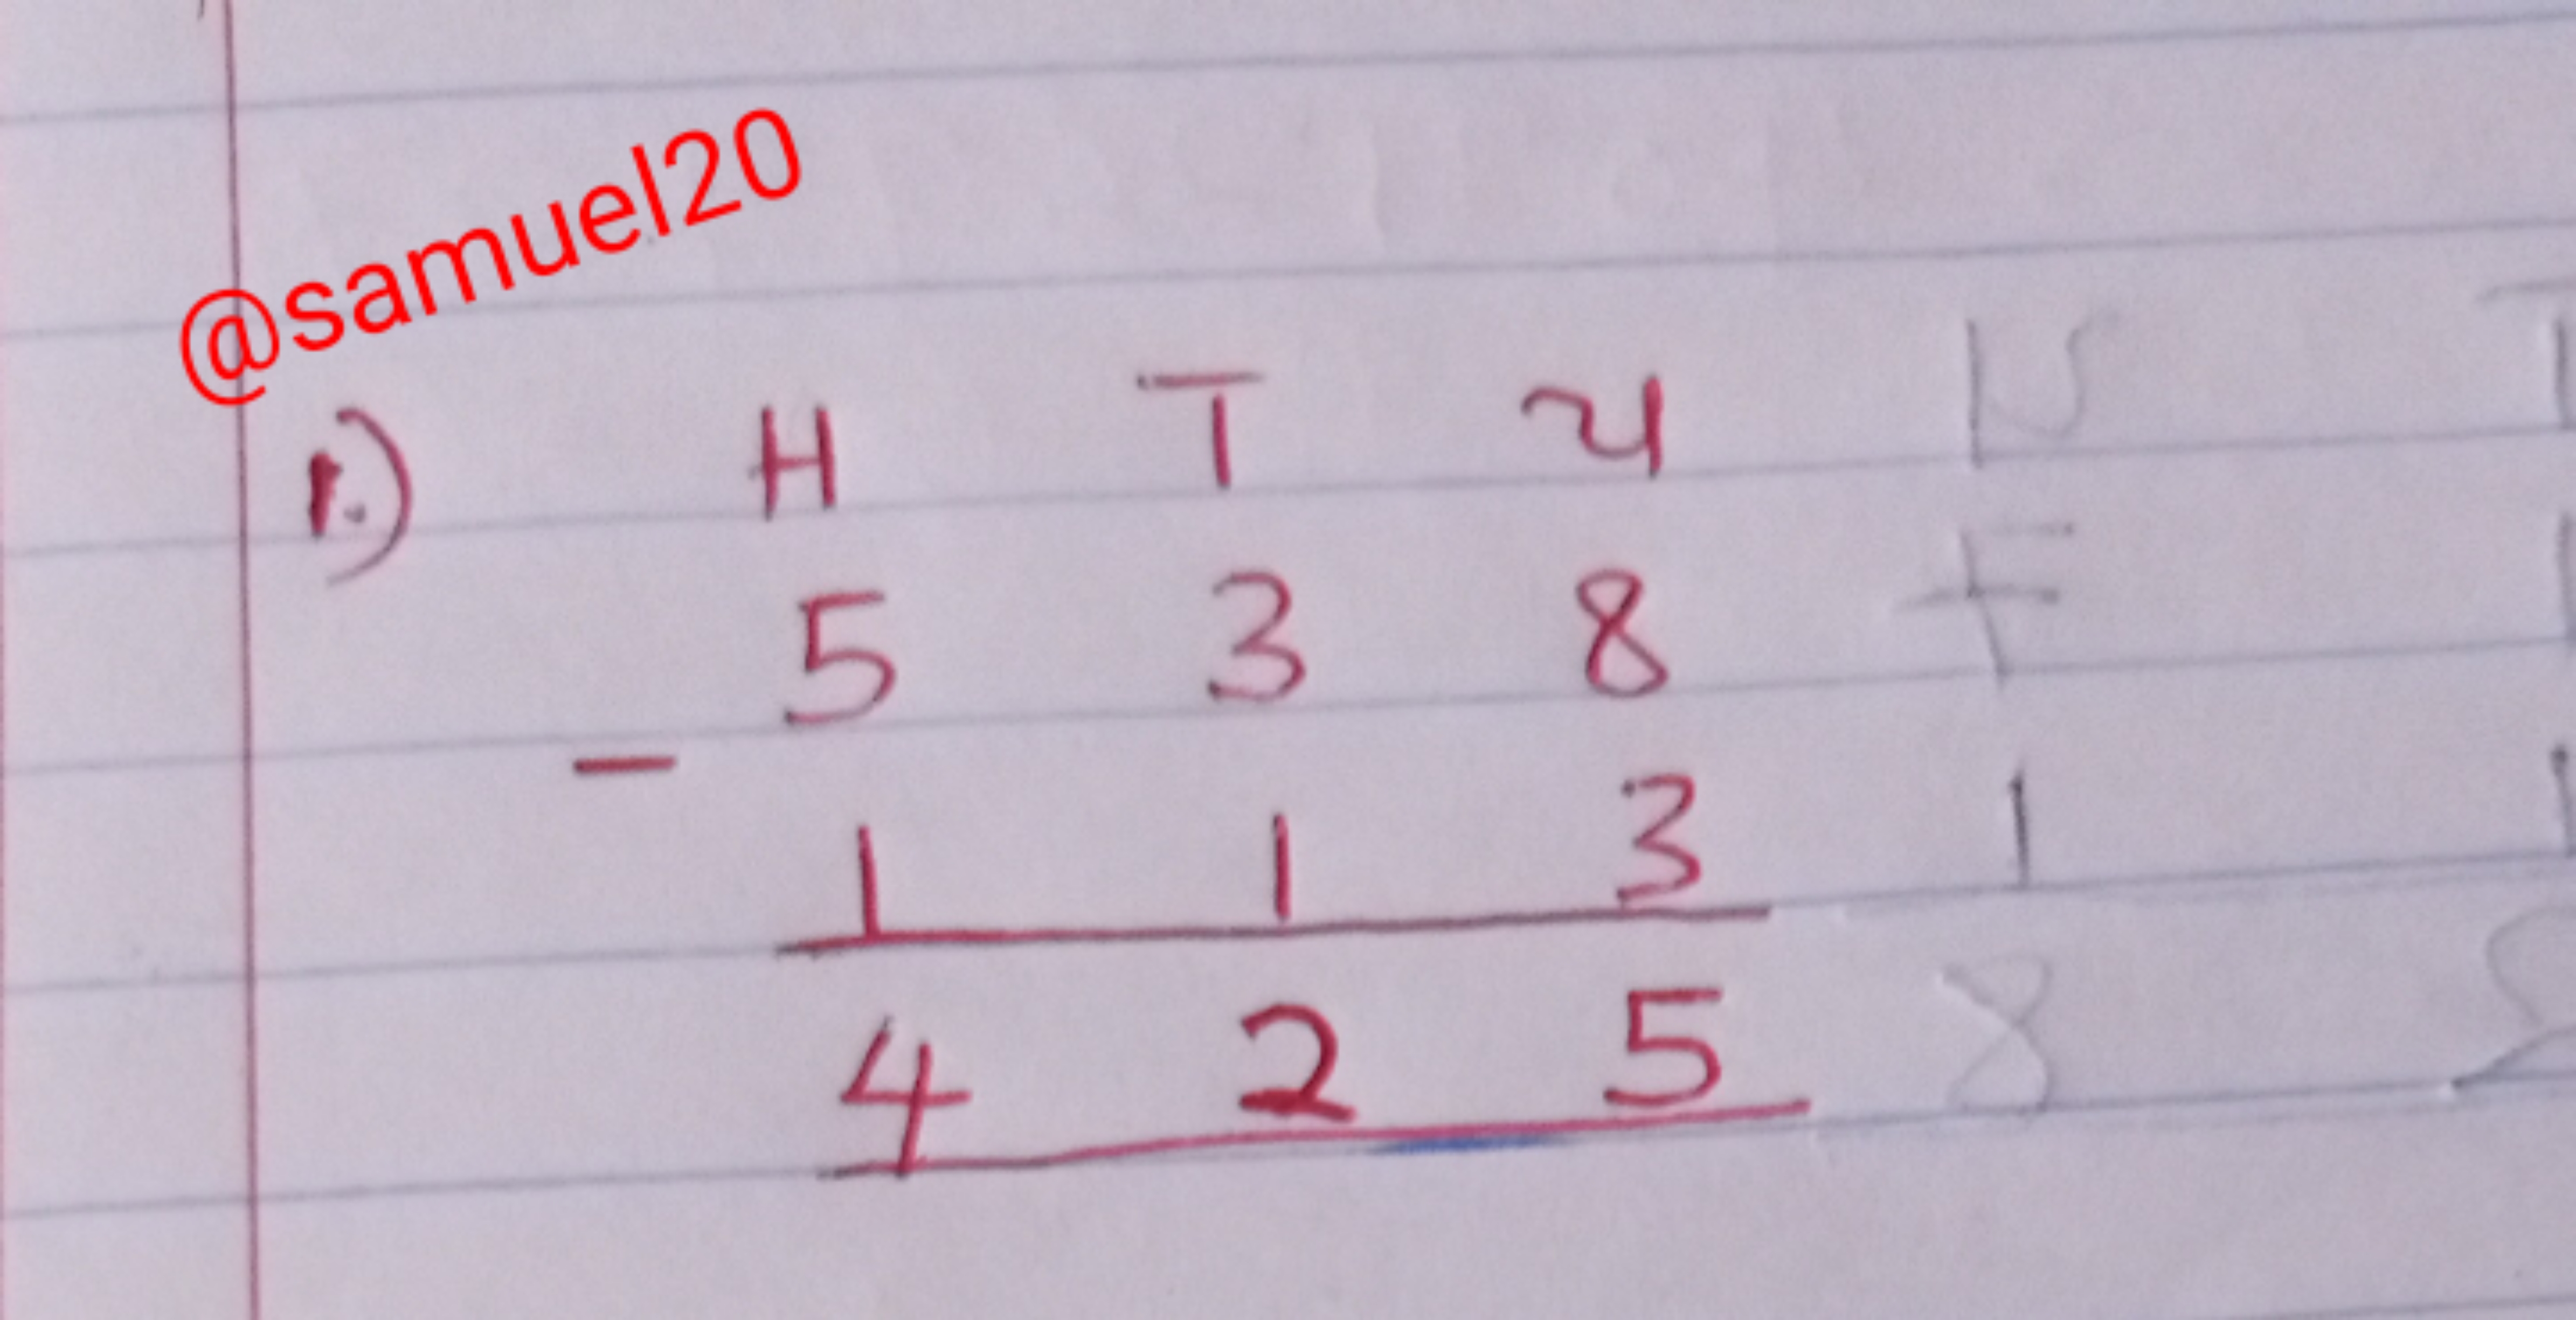 @samuel20
1.) H T U
5 3 8
-
1 1 3
4 2 5